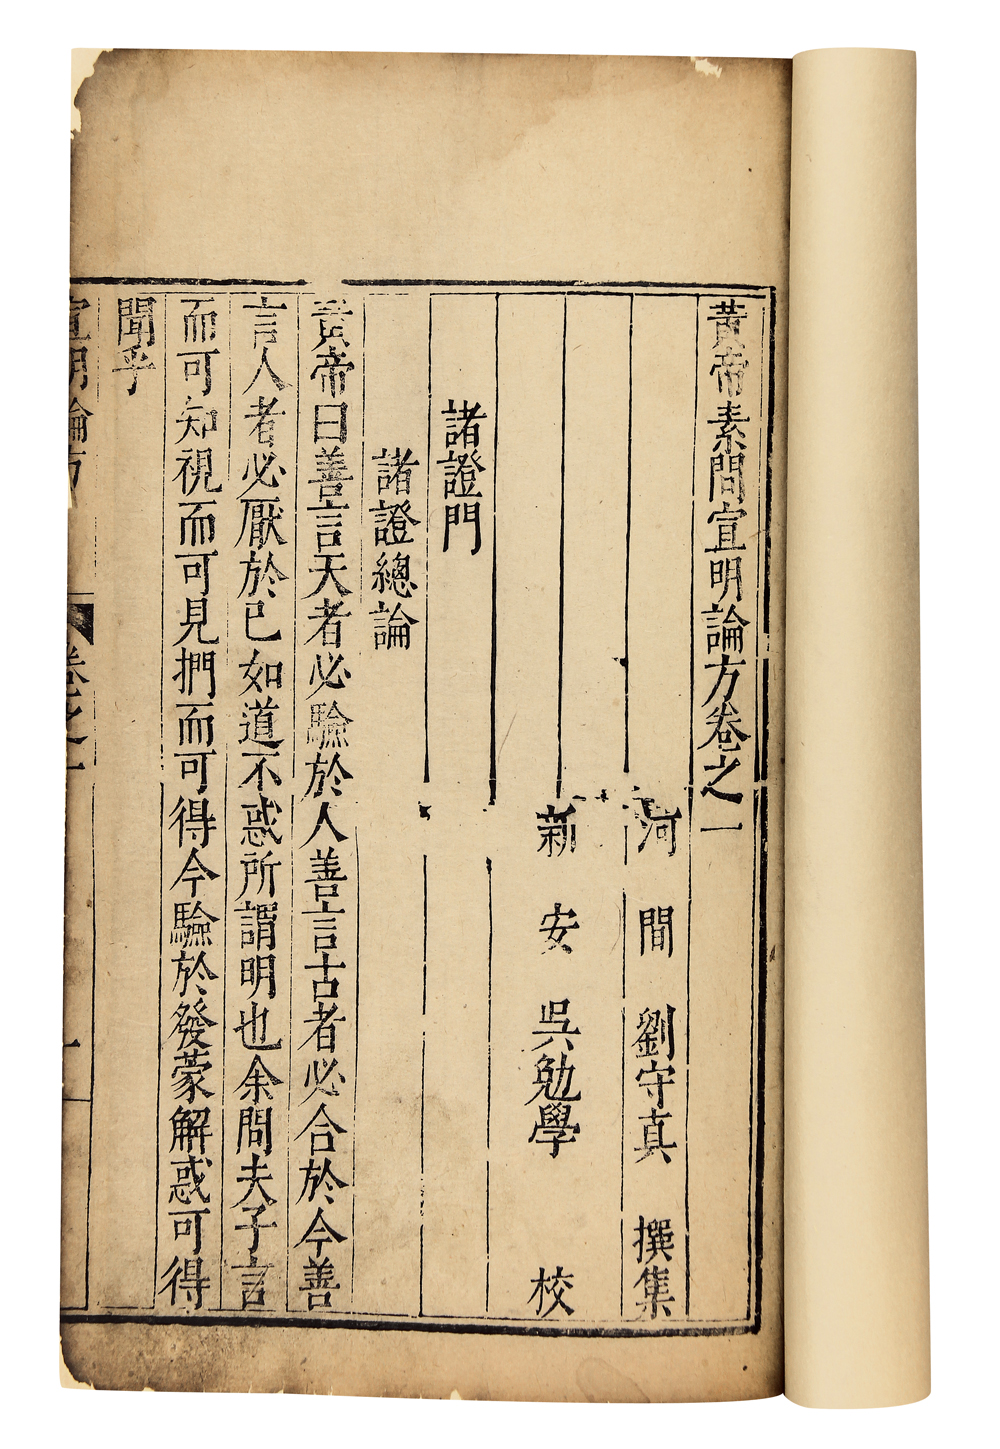 黃帝素問宣明論方卷之一
河間劉守真撰集
新安吳勉學校
諸證門
諸證總論
黃帝曰善言天者必驗於人善言古者必合於今善
言人者必厭於已如道不惑所謂明也余問夫子言
而可知視而可見捫而可得今驗於發蒙解惑可得
聞乎
宣明論方 卷之一 一